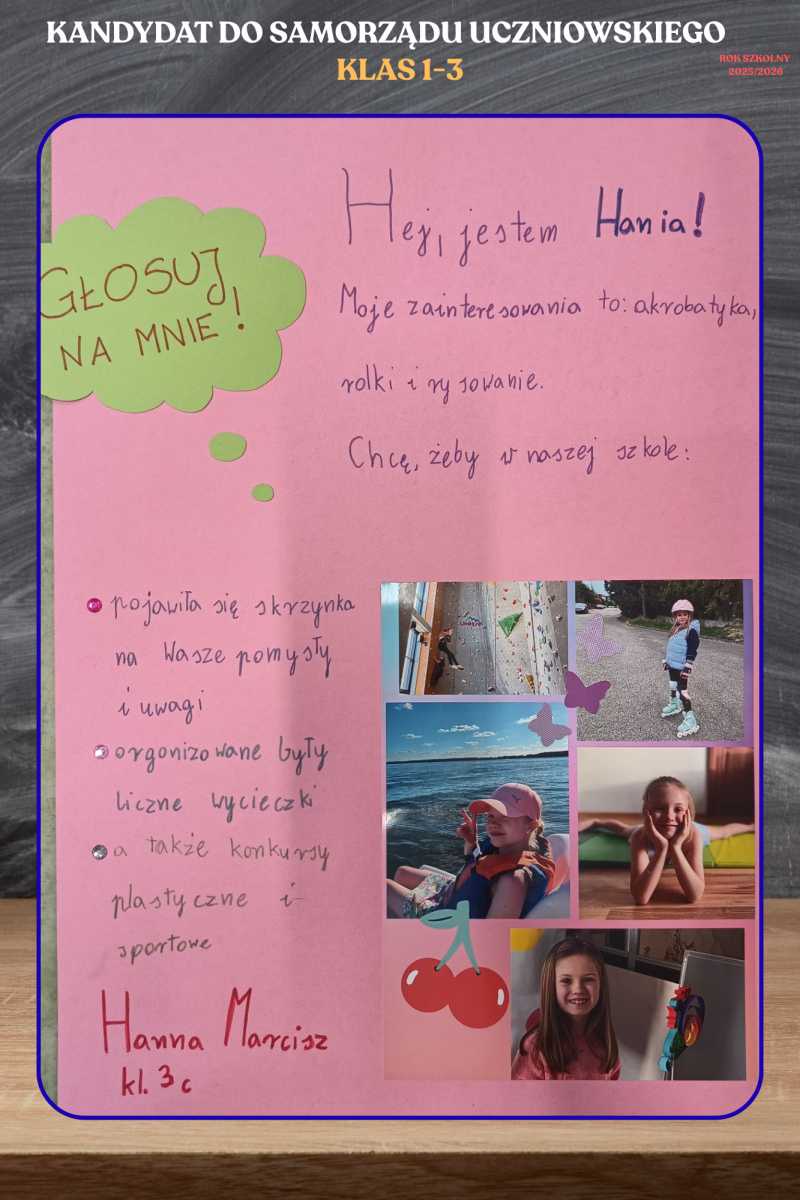 KANDYDAT DO SAMORZĄDU UCZNIOWSKIEGO
KLAS 1-3
ROK SZKOLNY
2025/2026
GŁOSUJ
NA MNIE!
Hej, jestem Hania!
Moje zainteresowania to: akrobatyka,
rolki i rysowanie.
Chcę, żeby w naszej szkole:
pojawiła się skrzynka
na Wasze pomysły
i uwagi
orgonizowane były
liczne wycieczki
a także konkursy
plastyczne i
sportowe
Hanna Marcisz
kl. 3c